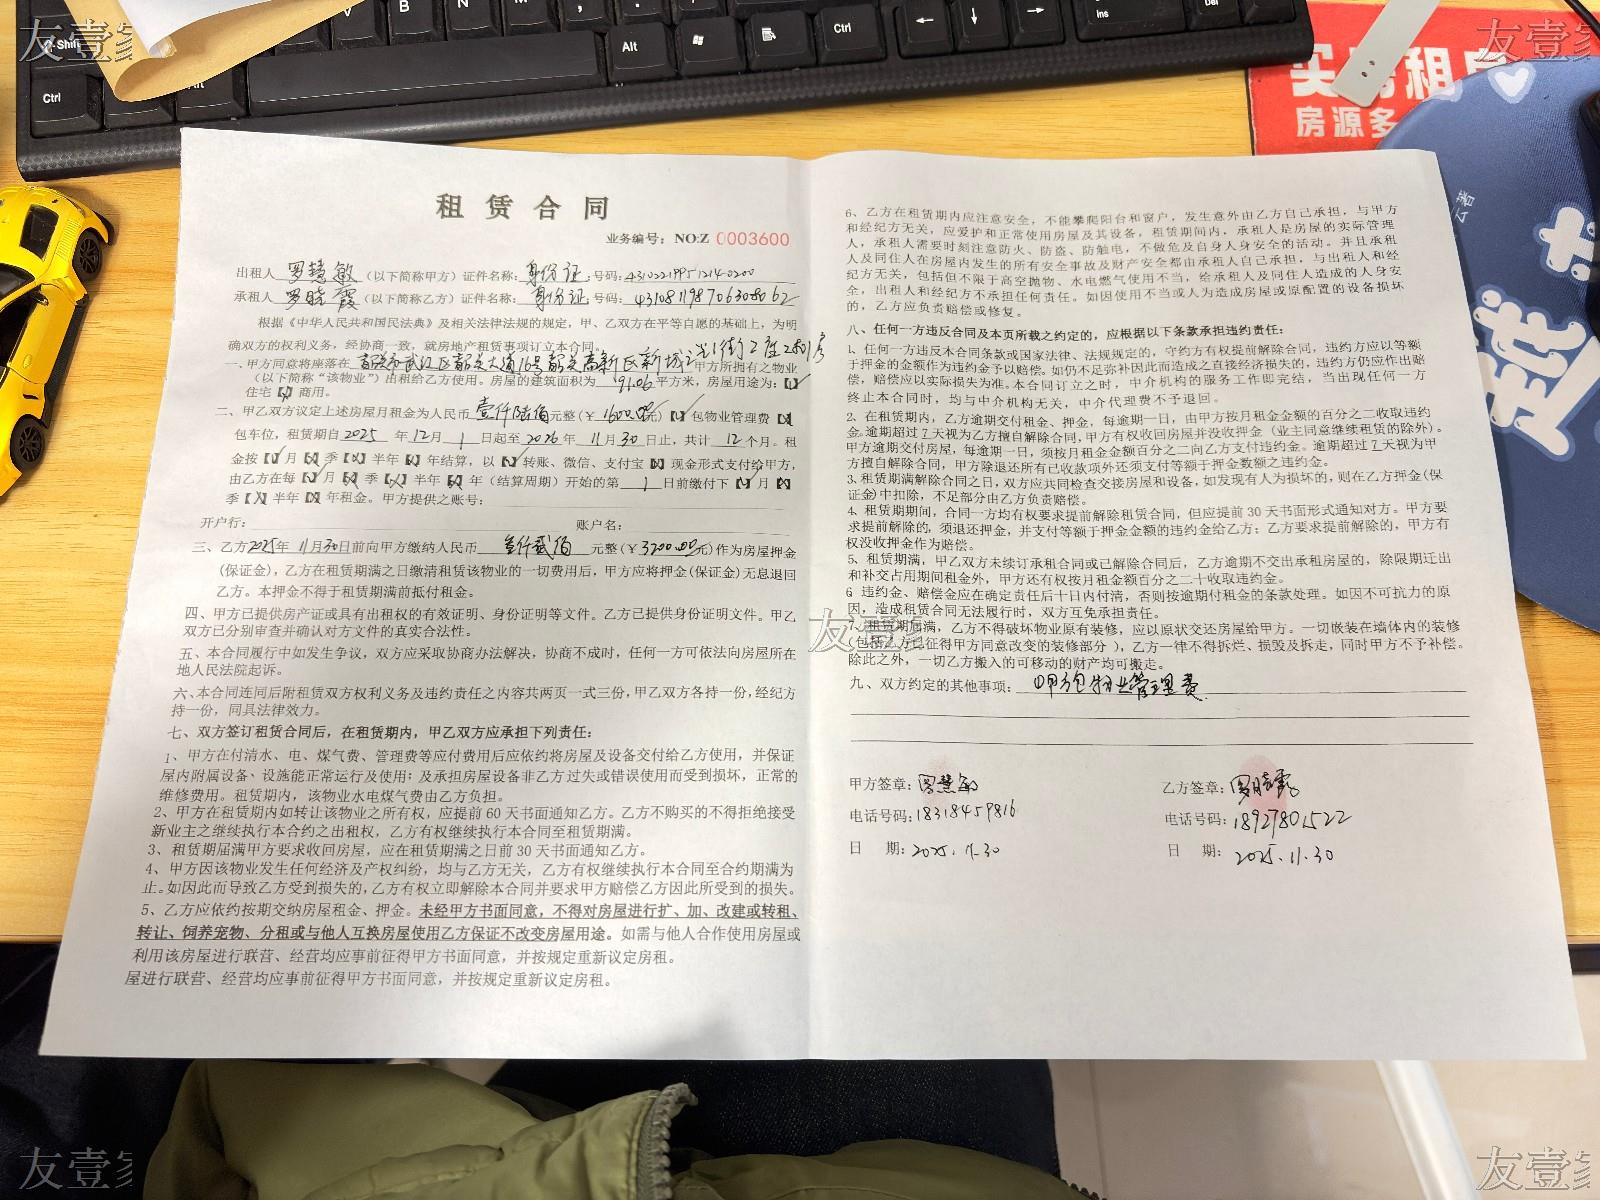 友壹家
友壹家
Shift
B
N
M
Alt
Ctrl
Ins
Del
Ctrl
Alt
买房租房
房源多
租赁合同
业务编号：NO:Z 0003600
出租人 罗慧敏（以下简称甲方）证件名称：身份证；号码：
承租人 罗晓霞（以下简称乙方）证件名称：身份证号码：431081198706308062
根据《中华人民共和国民法典》及相关法律法规的规定，甲、乙双方在平等自愿的基础上，为明
确双方的权利义务，经协商一致，就房地产租赁事项订立本合同。
一、甲方同意将座落在 韶关市武江区韶关大道16号韶关高新区新城之光1街2座2801房 甲方所拥有之物业
（以下简称“该物业”）出租给乙方使用。房屋的建筑面积为 91.06 平方米，房屋用途为：【√】
住宅【×】商用。
二、甲乙双方议定上述房屋月租金为人民币 壹仟陆佰 元整（￥1600.00元）【√】包物业管理费【×】
包车位，租赁期自 2025 年 12 月 1 日起至 2026 年 11 月 30 日止，共计 12 个月。租
金按【√】月【×】季【×】半年【×】年结算，以【√】转账、微信、支付宝【×】现金形式支付给甲方，
由乙方在每【√】月【×】季【×】半年【×】年（结算周期）开始的第 1 日前缴付下【√】月【×】
季【×】半年【×】年租金。甲方提供之账号：
开户行： 账户名：
三、乙方2025年 11月30日前向甲方缴纳人民币 叁仟贰佰 元整（￥3200.00元）作为房屋押金
(保证金)，乙方在租赁期满之日缴清租赁该物业的一切费用后，甲方应将押金(保证金)无息退回
乙方。本押金不得于租赁期满前抵付租金。
四、甲方已提供房产证或具有出租权的有效证明、身份证明等文件。乙方已提供身份证明文件。甲乙
双方已分别审查并确认对方文件的真实合法性。
五、本合同履行中如发生争议，双方应采取协商办法解决，协商不成时，任何一方可依法向房屋所在
地人民法院起诉。
六、本合同连同后附租赁双方权利义务及违约责任之内容共两页一式三份，甲乙双方各持一份，经纪方
持一份，同具法律效力。
七、双方签订租赁合同后，在租赁期内，甲乙双方应承担下列责任：
1、甲方在付清水、电、煤气费、管理费等应付费用后应依约将房屋及设备交付给乙方使用，并保证
屋内附属设备、设施能正常运行及使用；及承担房屋设备非乙方过失或错误使用而受到损坏，正常的
维修费用。租赁期内，该物业水电煤气费由乙方负担。
2、甲方在租赁期内如转让该物业之所有权，应提前60天书面通知乙方。乙方不购买的不得拒绝接受
新业主之继续执行本合约之出租权，乙方有权继续执行本合同至租赁期满。
3、租赁期届满甲方要求收回房屋，应在租赁期满之日前30天书面通知乙方。
4、甲方因该物业发生任何经济及产权纠纷，均与乙方无关，乙方有权继续执行本合同至合约期满为
止。如因此而导致乙方受到损失的，乙方有权立即解除本合同并要求甲方赔偿乙方因此所受到的损失。
5、乙方应依约按期交纳房屋租金、押金。未经甲方书面同意，不得对房屋进行扩、加、改建或转租、
转让、饲养宠物、分租或与他人互换房屋使用乙方保证不改变房屋用途。如需与他人合作使用房屋或
利用该房屋进行联营、经营均应事前征得甲方书面同意，并按规定重新议定房租。
屋进行联营、经营均应事前征得甲方书面同意，并按规定重新议定房租。
6、乙方在租赁期内应注意安全，不能攀爬阳台和窗户，发生意外由乙方自己承担，与甲方
和经纪方无关，应爱护和正常使用房屋及其设备，租赁期间内，承租人是房屋的实际管理
人，承租人需要时刻注意防火、防盗、防触电，不做危及自身人身安全的活动。并且承租
人及同住人在房屋内发生的所有安全事故及财产安全都由承租人自己承担，与出租人和经
纪方无关，包括但不限于高空抛物、水电燃气使用不当，给承租人及同住人造成的人身安
全，出租人和经纪方不承担任何责任。如因使用不当或人为造成房屋或原配置的设备损坏
的，乙方应负责赔偿或修复。
八、任何一方违反合同及本页所载之约定的，应根据以下条款承担违约责任：
1、任何一方违反本合同条款或国家法律、法规规定的，守约方有权提前解除合同，违约方应以等额
于押金的金额作为违约金予以赔偿。如仍不足弥补因此而造成之直接经济损失的，违约方仍应作出赔
偿，赔偿应以实际损失为准。本合同订立之时，中介机构的服务工作即完结，当出现任何一方
终止本合同时，均与中介机构无关，中介代理费不予退回。
2、在租赁期内，乙方逾期交付租金、押金，每逾期一日，由甲方按月租金金额的百分之二收取违约
金。逾期超过7天视为乙方擅自解除合同，甲方有权收回房屋并没收押金（业主同意继续租赁的除外）。
甲方逾期交付房屋，每逾期一日，须按月租金金额百分之二向乙方支付违约金。逾期超过7天视为甲
方擅自解除合同，甲方除退还所有已收款项外还须支付等额于押金数额之违约金。
3、租赁期满解除合同之日，双方应共同检查交接房屋和设备，如发现有人为损坏的，则在乙方押金(保
证金)中扣除，不足部分由乙方负责赔偿。
4、租赁期期间，合同一方均有权要求提前解除租赁合同，但应提前30天书面形式通知对方。甲方要
求提前解除的，须退还押金，并支付等额于押金金额的违约金给乙方；乙方要求提前解除的，甲方有
权没收押金作为赔偿。
5、租赁期满，甲乙双方未续订承租合同或已解除合同后，乙方逾期不交出承租房屋的，除限期迁出
和补交占用期间租金外，甲方还有权按月租金额百分之二十收取违约金。
6 违约金、赔偿金应在确定责任后十日内付清，否则按逾期付租金的条款处理。如因不可抗力的原
因，造成租赁合同无法履行时，双方互免承担责任。
7、租赁期届满，乙方不得破坏物业原有装修，应以原状交还房屋给甲方。一切嵌装在墙体内的装修
（包括乙方已征得甲方同意改变的装修部分），乙方一律不得拆烂、损毁及拆走，同时甲方不予补偿。
除此之外，一切乙方搬入的可移动的财产均可搬走。
九、双方约定的其他事项：甲方包物业管理费.
甲方签章：罗慧敏
电话号码：18318459816
日 期：2025.11.30
乙方签章：罗晓霞
电话号码：18929801522
日 期：2025.11.30
友壹家
友壹家
友壹家